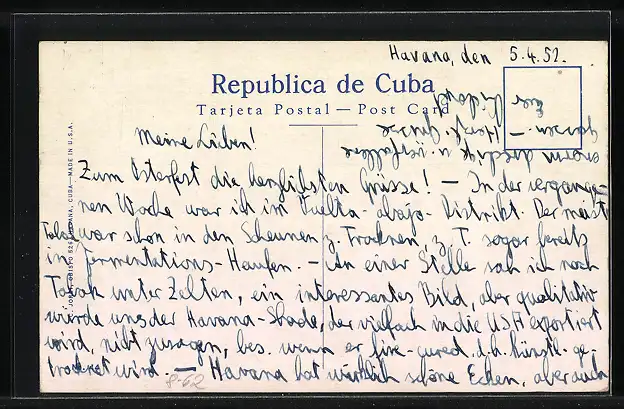 Havana, den 5.4.52.
Republica de Cuba
Tarjeta Postal — Post Card
Meine Lieben!
Zum Osterfest die herzlichsten Grüsse! — In der vergange-
nen Woche war ich im Vuelta-abajo-Distrikt. Der meiste
Tabak war schon in den Scheunen z. Trocknen, z. T. sogar bereits
in Fermentations-Haufen. — An einer Stelle sah ich noch
Tabak unter Zelten, ein interessantes Bild, aber qualitativ
würde uns der Havana-Shade, der vielfach in die USA exportiert
wird, nicht zusagen, bes. wenn er fire-cured, d.h. künstl. ge-
trocknet wird. — Havana hat wirklich schöne Ecken, aber auch
enorm
— Herzl. Grüsse
Euer
HAVANA, CUBA—MADE IN U.S.A.
8-62